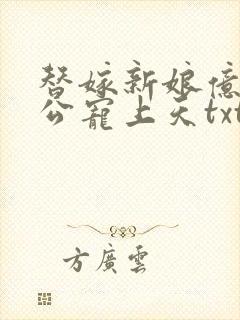 替嫁新娘億
公寵上天txt
方廣雲